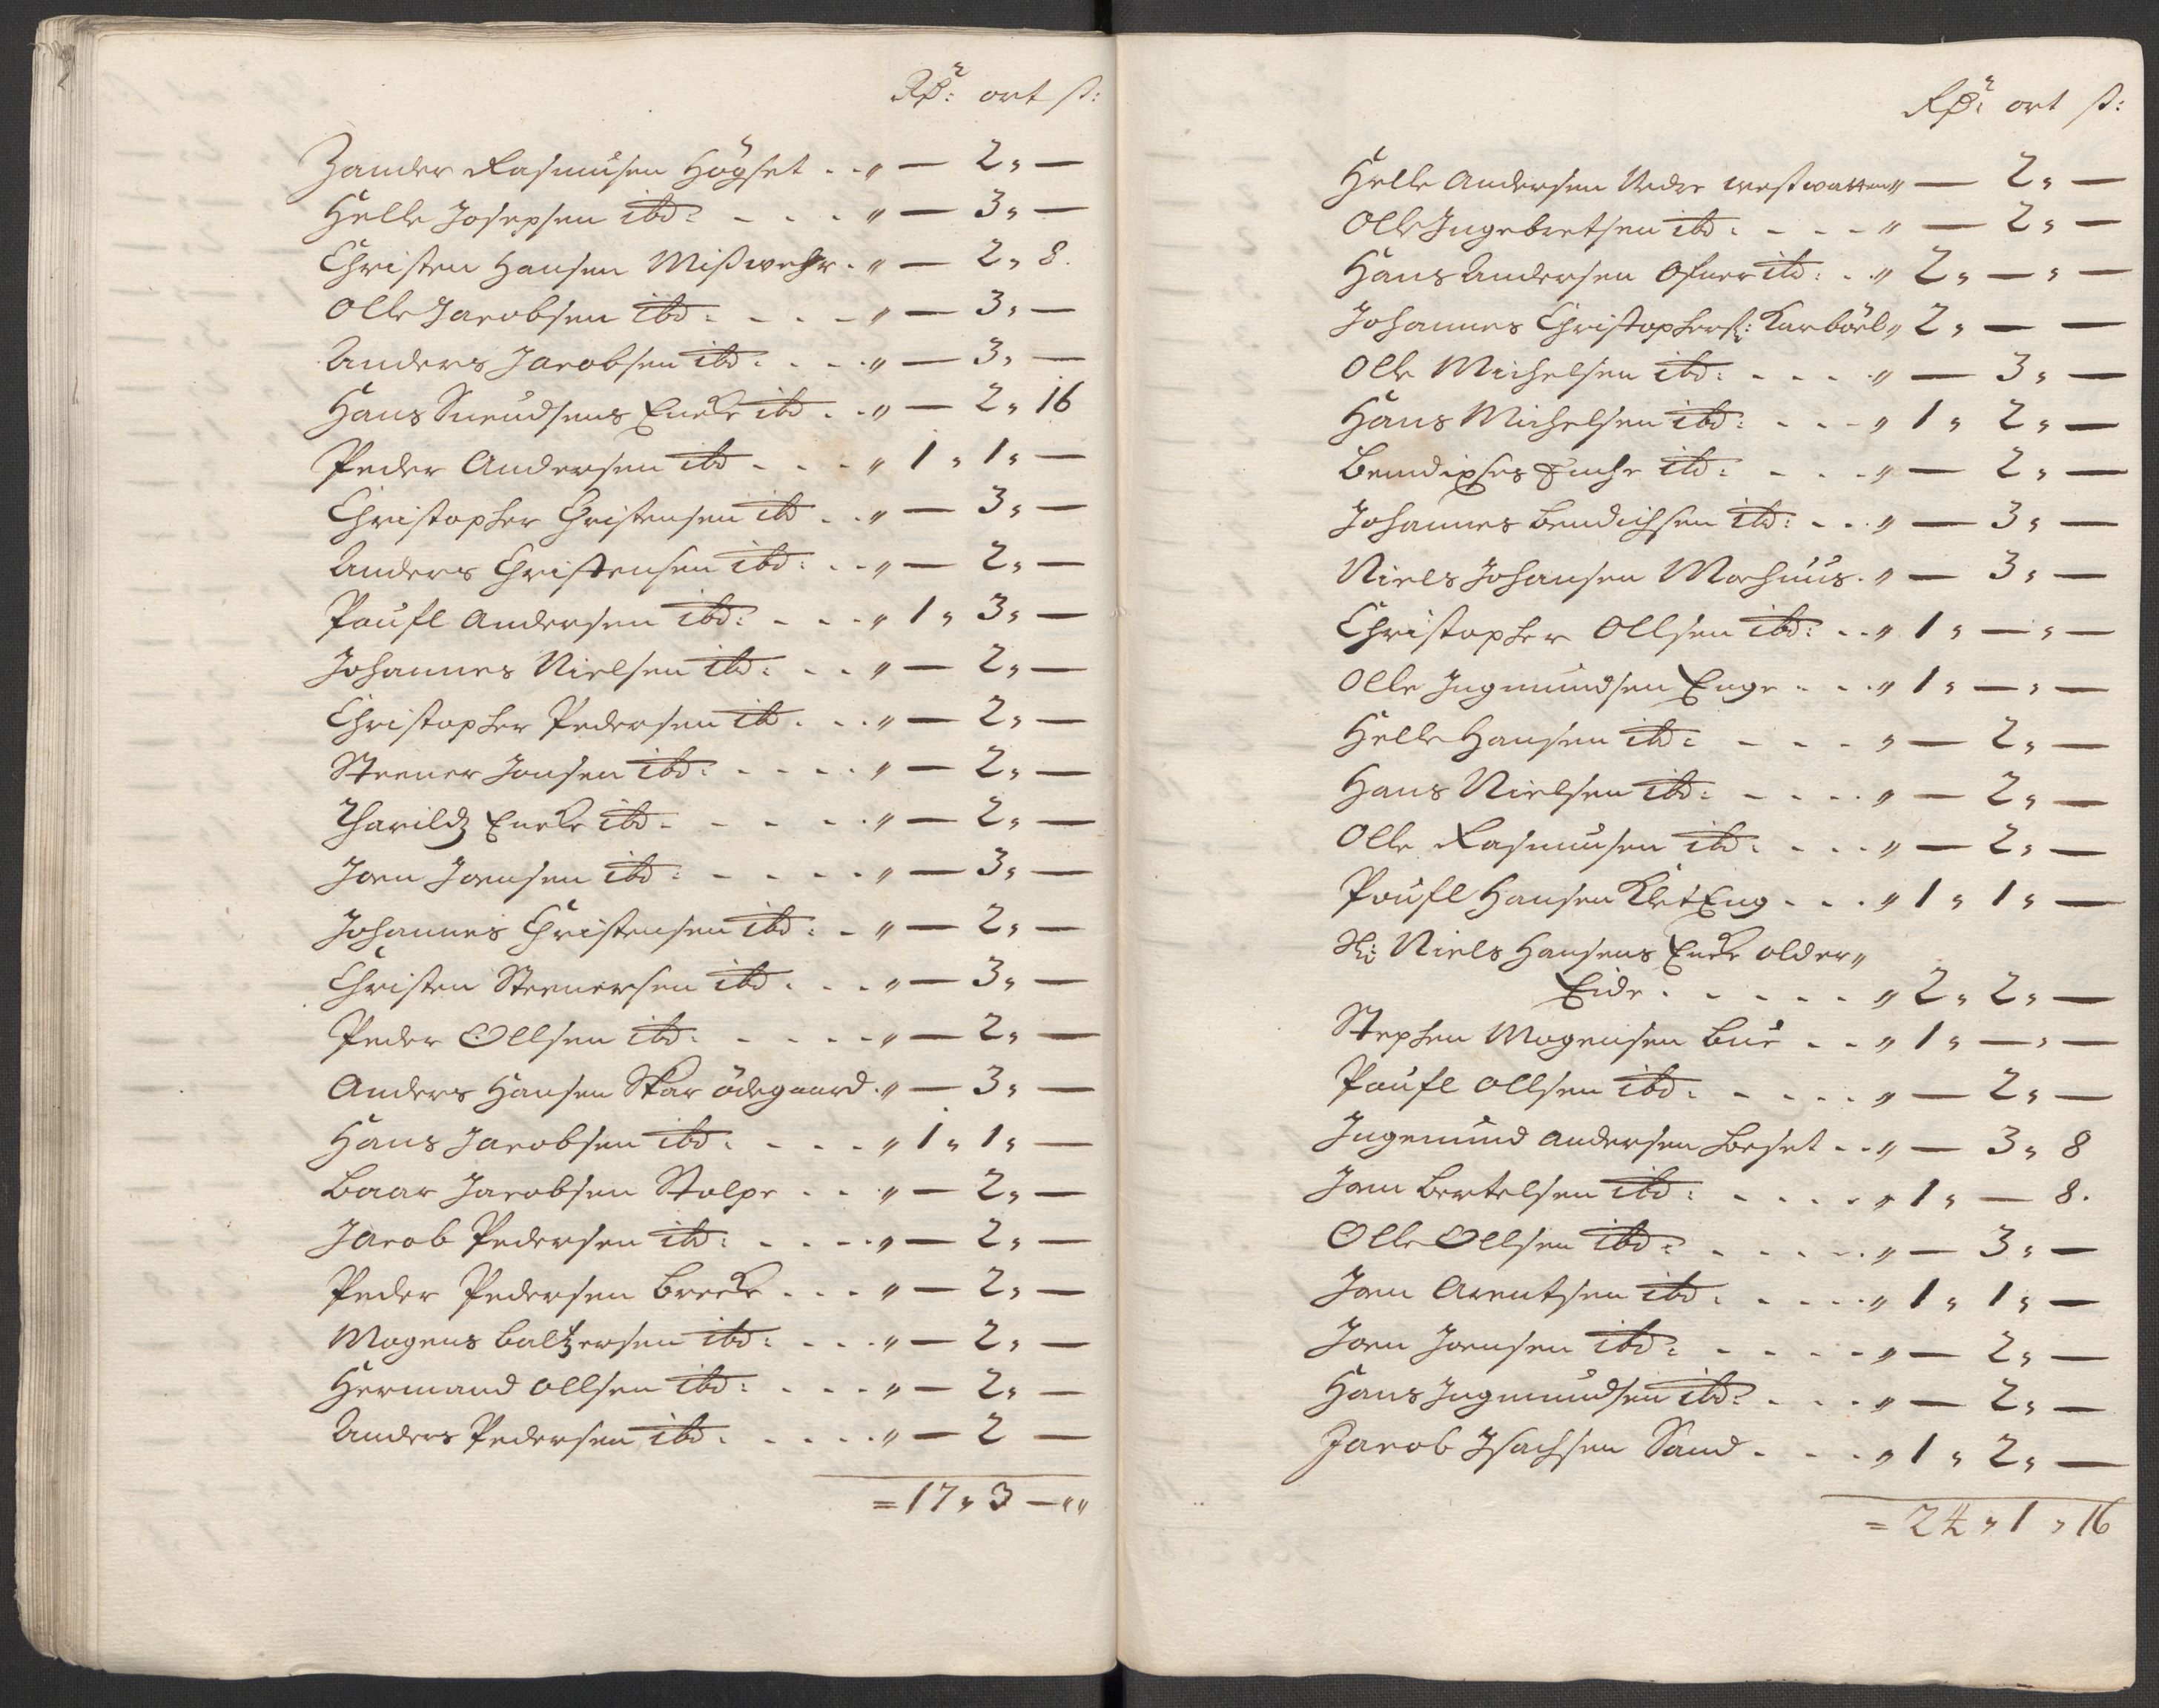 Rdr: ort ß:
Zander Rasmusen Högset . . „ — 2, —
Helle Josepsen ibd: - - - „ — 3, —
Christen Hansen Mißwehr . „ — 2, 8.
Olle Jacobsen ibd: - - - „ — 3, —
Anders Jacobsen ibd: - - - „ — 3, —
Hans Knudsens Encke ibd . . „ — 2, 16
Peder Andersen ibd - - - „ 1, 1, —
Christopher Christensen ibd . . „ — 3, —
Anders Christensen ibd: . . „ — 2, —
Poufl Andersen ibd: - - - „ 1, 3, —
Johannes Nielsen ibd: - - „ — 2, —
Christopher Pedersen ibd . . . „ — 2, —
Steener Jonsen ibd: - - - - „ — 2, —
Tharildz Encke ibd - - - - . „ — 2, —
Joen Joensen ibd: - - - - „ — 3, —
Johannes Christensen ibd: . „ — 2, —
Christen Steenersen ibd . . . „ — 3, —
Peder Ollsen ibd: - - - - „ — 2, —
Anders Hansen Skar ödegaard . „ — 3, —
Hans Jacobsen ibd: - - - „ 1, 1, —
Baar Jacobsen Stolpe . . . „ — 2, —
Jacob Pedersen ibd: - - - - „ — 2, —
Peder Pedersen Brecke . . . „ — 2, —
Mogens Baltzersen ibd: - - - „ — 2, —
Hermand Ollsen ibd: - - - „ — 2, —
Anders Pedersen ibd . - - - - „ — 2 —
= 17, 3 — „„
Rdr: ort ß:
Helle Andersen Nedre westwatten „ — 2, —
Olle Ingebretsen ibd: - - - „ — 2, —
Hans Andersen Öfuer ibd: . . „ 2, —, —
Johannes Christophers: Karböel „ 2, — —
Olle Michelsen ibd: - - - „ — 3, —
Hans Michelsen ibd: - - - „ 1, 2, —
Bendixses Enche ibd: - - - „ — 2, —
Johannes Bendichsen ibd: . . „ — 3, —
Niels Johansen Morhuus . „ — 3, —
Christopher Ollsen ibd: . . „ 1, —, —
Olle Ingmundsen Enge . . . „ 1, —, —
Helle Hansen ibd: - - - „ — 2, —
Hans Nielsen ibd: - - - - „ — 2, —
Olle Rasmusen ibd: - - - „ — 2, —
Poufl Hansen Klet Eng . . . „ 1, 1, —
Sl: Niels Hansens Encke older„
Eide . - - - - „ 2, 2, —
Stephen Mogensen Bue . . „ 1, —, —
Poufl Ollsen ibd: - - - - „ — 2, —
Ingemund Andersen Boeset . . „ — 3, 8
Joen Bertelsen ibd: - - - - „ 1, — 8.
Olle Ollsen ibd: - - - - „ — 3, —
Joen Arentsen ibd: - - - - „ 1, 1, —
Joen Joensen ibd: - - - - „ — 2, —
Hans Ingmundsen ibd: - - - „ — 2, —
Jacob Isachsen Sand - - - „ 1, 2, —
= 24, 1, 16